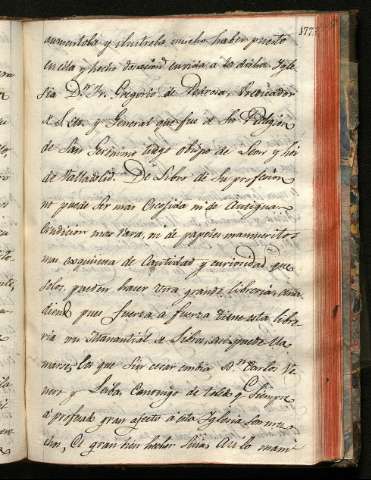 177
aumentola y ilustrola mucho haber puesto
en ella y hecho donacion en vida a la dicha Igle
sia Dn. Fr. Gregorio de Pedrosa, Predicador
y General que fue de su Religion
de San Geronimo Obispo de Leon y
de Valladolid. De Libros de su profesion
no puede ser mas crecida ni de Antigua
erudicion mas rara, ni de papeles manuscritos
mas exquisitos de Cantidad y curiosidad que
solos, pueden hacer otra grande libreria
pues fuerza a fuerza tiene esta libre
ria un Manantial de Libros, asi puede lla
marse, los que Dn. Carlos Ve
nero y Leiva Canonigo de Toledo siempre
a profesado gran afecto a esta Iglesia son mu
chos, El gran bien hechor suio Asi lo mani